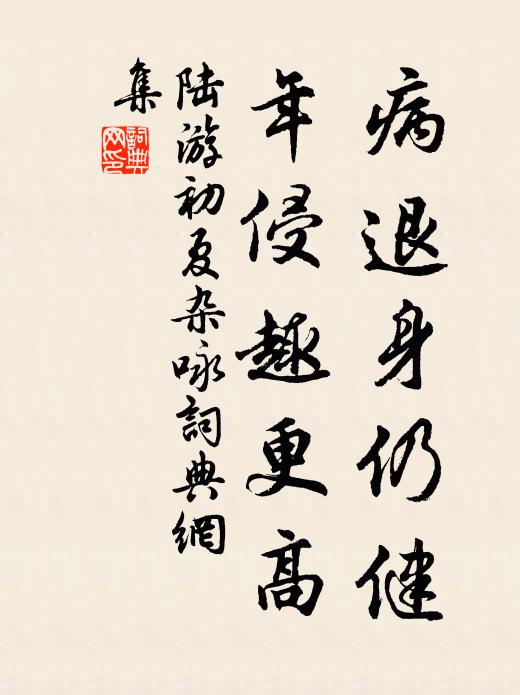 病退身仍健
年侵趣更高
陆游初夏杂咏詞典網
集
詞典
网印